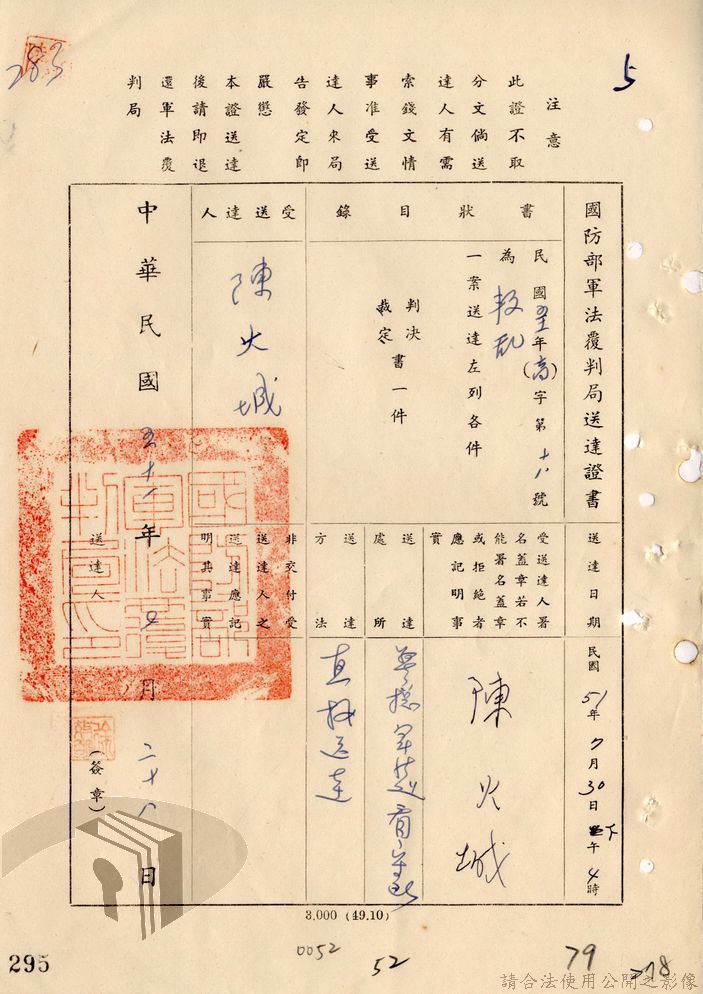 283
5
注意
此證不取
分文倘送
達人有需
索錢文情
事准受送
達人來局
告發定即
嚴懲
本證送達
後請即退
還軍法覆
判局
國防部軍法覆判局送達證書
送達日期
民國51年7月30日下午4時
書狀目錄
民國五一年(高)字第十八號
為叛亂
一案送達左列各件
判決
裁定
書一件
受送達人署
名蓋章若不
能署名蓋章
或拒絕者
應記明事
實
陳火城
送達處所
軍法看守所
送達方法
直接送達
受送達人
陳火城
非交付受
送達人之
送達應記
明其事實
中華民國五十一年七月二十八日
國防部軍法覆判局印
送達人
(簽章)
3,000 (49.10)
295
0052
52
79
78
請合法使用公開之影像